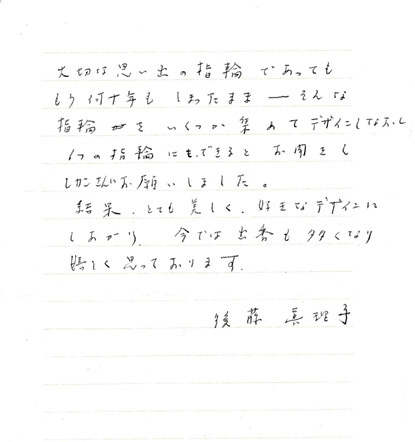 大切な思い出の指輪であっても
もう何十年も しまったまま ― そんな
指輪を いくつか集めて デザインしなおし
1つの指輪にもできると お聞きし
しかンさんにお願いしました。
結果、とても美しく、好きなデザインに
しあがり、今では出番も多くなり
嬉しく思っております。
後藤 真理子